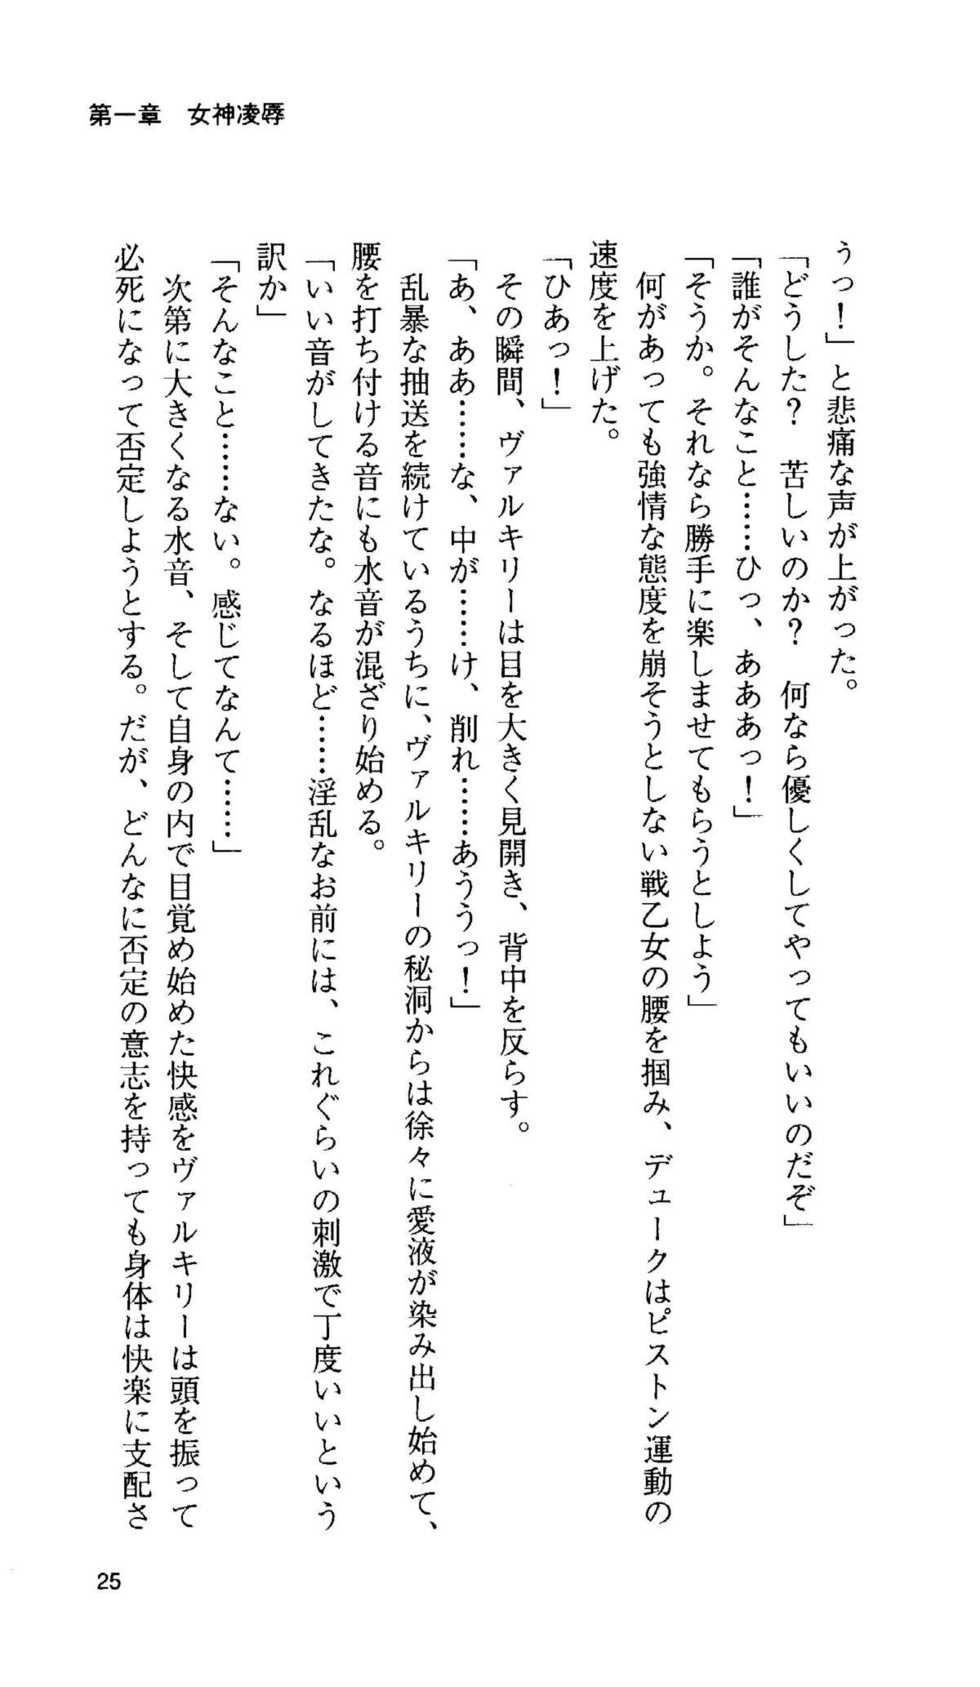 第一章　女神凌辱
うっ！」と悲痛な声が上がった。
「どうした？　苦しいのか？　何なら優しくしてやってもいいのだぞ」
「誰がそんなこと……ひっ、あああっ！」
「そうか。それなら勝手に楽しませてもらうとしよう」
　何があっても強情な態度を崩そうとしない戦乙女の腰を掴み、デュークはピストン運動の
速度を上げた。
「ひあっ！」
　その瞬間、ヴァルキリーは目を大きく見開き、背中を反らす。
「あ、ああ……な、中が……け、削れ……あううっ！」
　乱暴な抽送を続けているうちに、ヴァルキリーの秘洞からは徐々に愛液が染み出し始めて、
腰を打ち付ける音にも水音が混ざり始める。
「いい音がしてきたな。なるほど……淫乱なお前には、これぐらいの刺激で丁度いいという
訳か」
「そんなこと……ない。感じてなんて……」
　次第に大きくなる水音、そして自身の内で目覚め始めた快感をヴァルキリーは頭を振って
必死になって否定しようとする。だが、どんなに否定の意志を持っても身体は快楽に支配さ
25